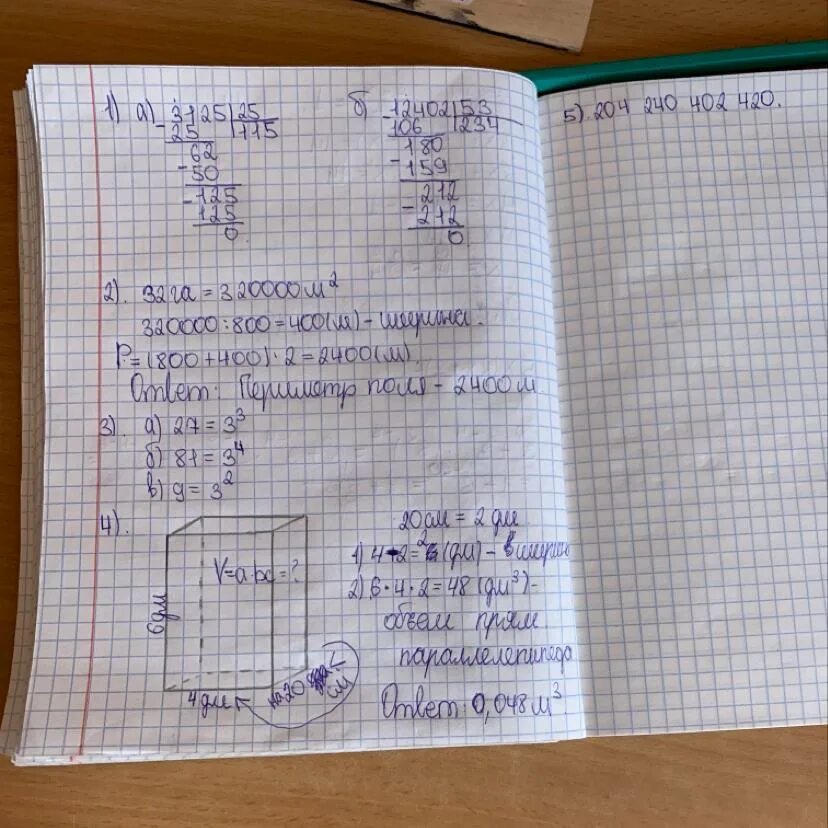 1) а) 3125 | 25
25 | 115
62
50
125
125
0
б) 12402 | 53
106 | 234
180
159
212
212
0
2). 32га = 320000 м²
320000 : 800 = 400(м) - ширина.
P = (800 + 400) · 2 = 2400(м)
Ответ: Периметр поля - 2400м
3). а) 27 = 3³
б) 81 = 3⁴
в) 9 = 3²
4).
V = a·bc = ?
6дм
4дм
на 20 см <
20см = 2 дм
1) 4-2=2 (дм) - ширин
2) 6·4·2=48 (дм³) -
объем прям.
параллелепипеда
Ответ: 0,048 м³
5). 204 240 402 420.